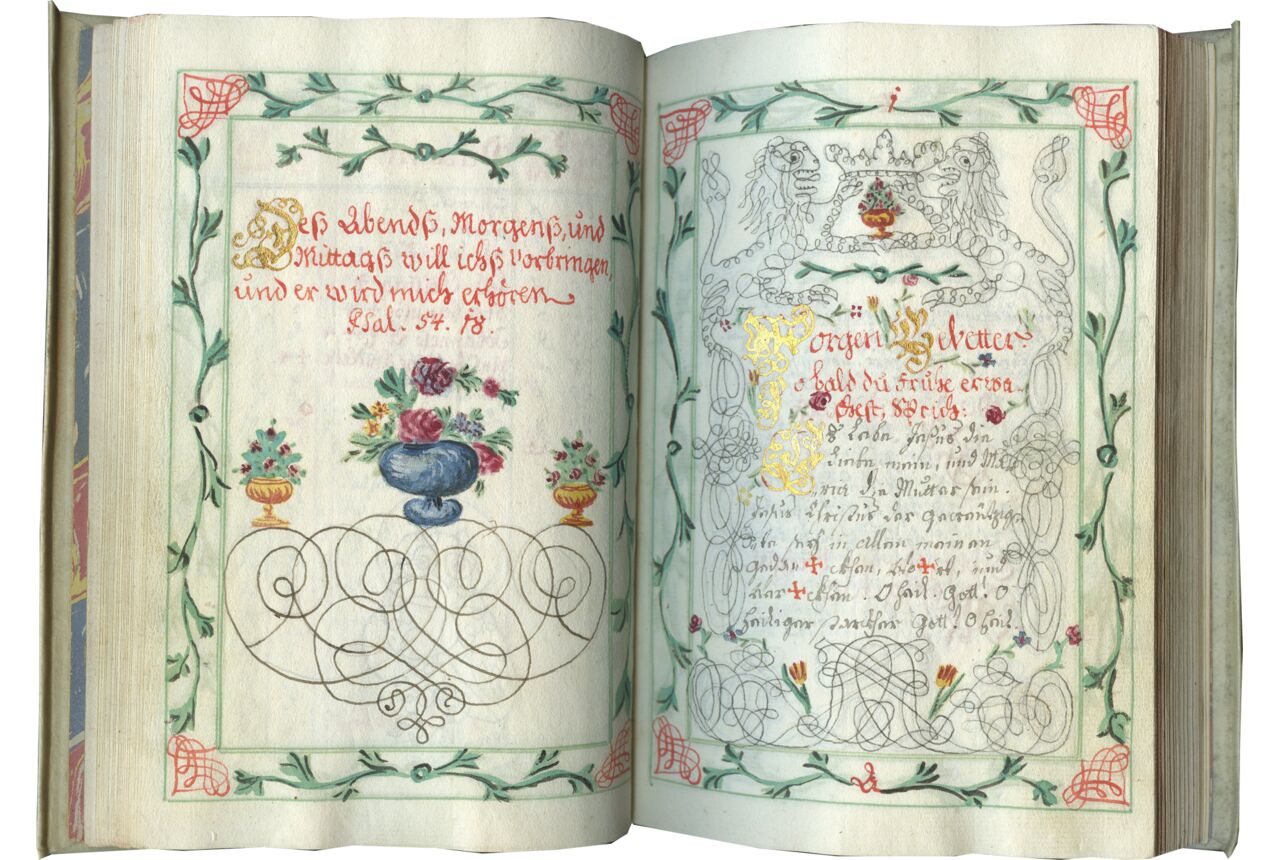 Deß Abendß, Morgenß, und
Mittagß will ichß Vorbringen,
und er wird mich erhören
Psal. 54. 18.
1
Morgen Gebetter
So bald du Frühe erwa-
chest, Sprich:
Es Lebe Jesus die
Liebe mein, und Ma-
ria die Mutter sein.
Jesus Christus der Gecreutzig-
te seÿ in allen meinen
gedan ✝ cken, Wo ✝ rt, und
Wer ✝ cken. O heil. Gott. O
heiliger starcker Gott. O heil.
A